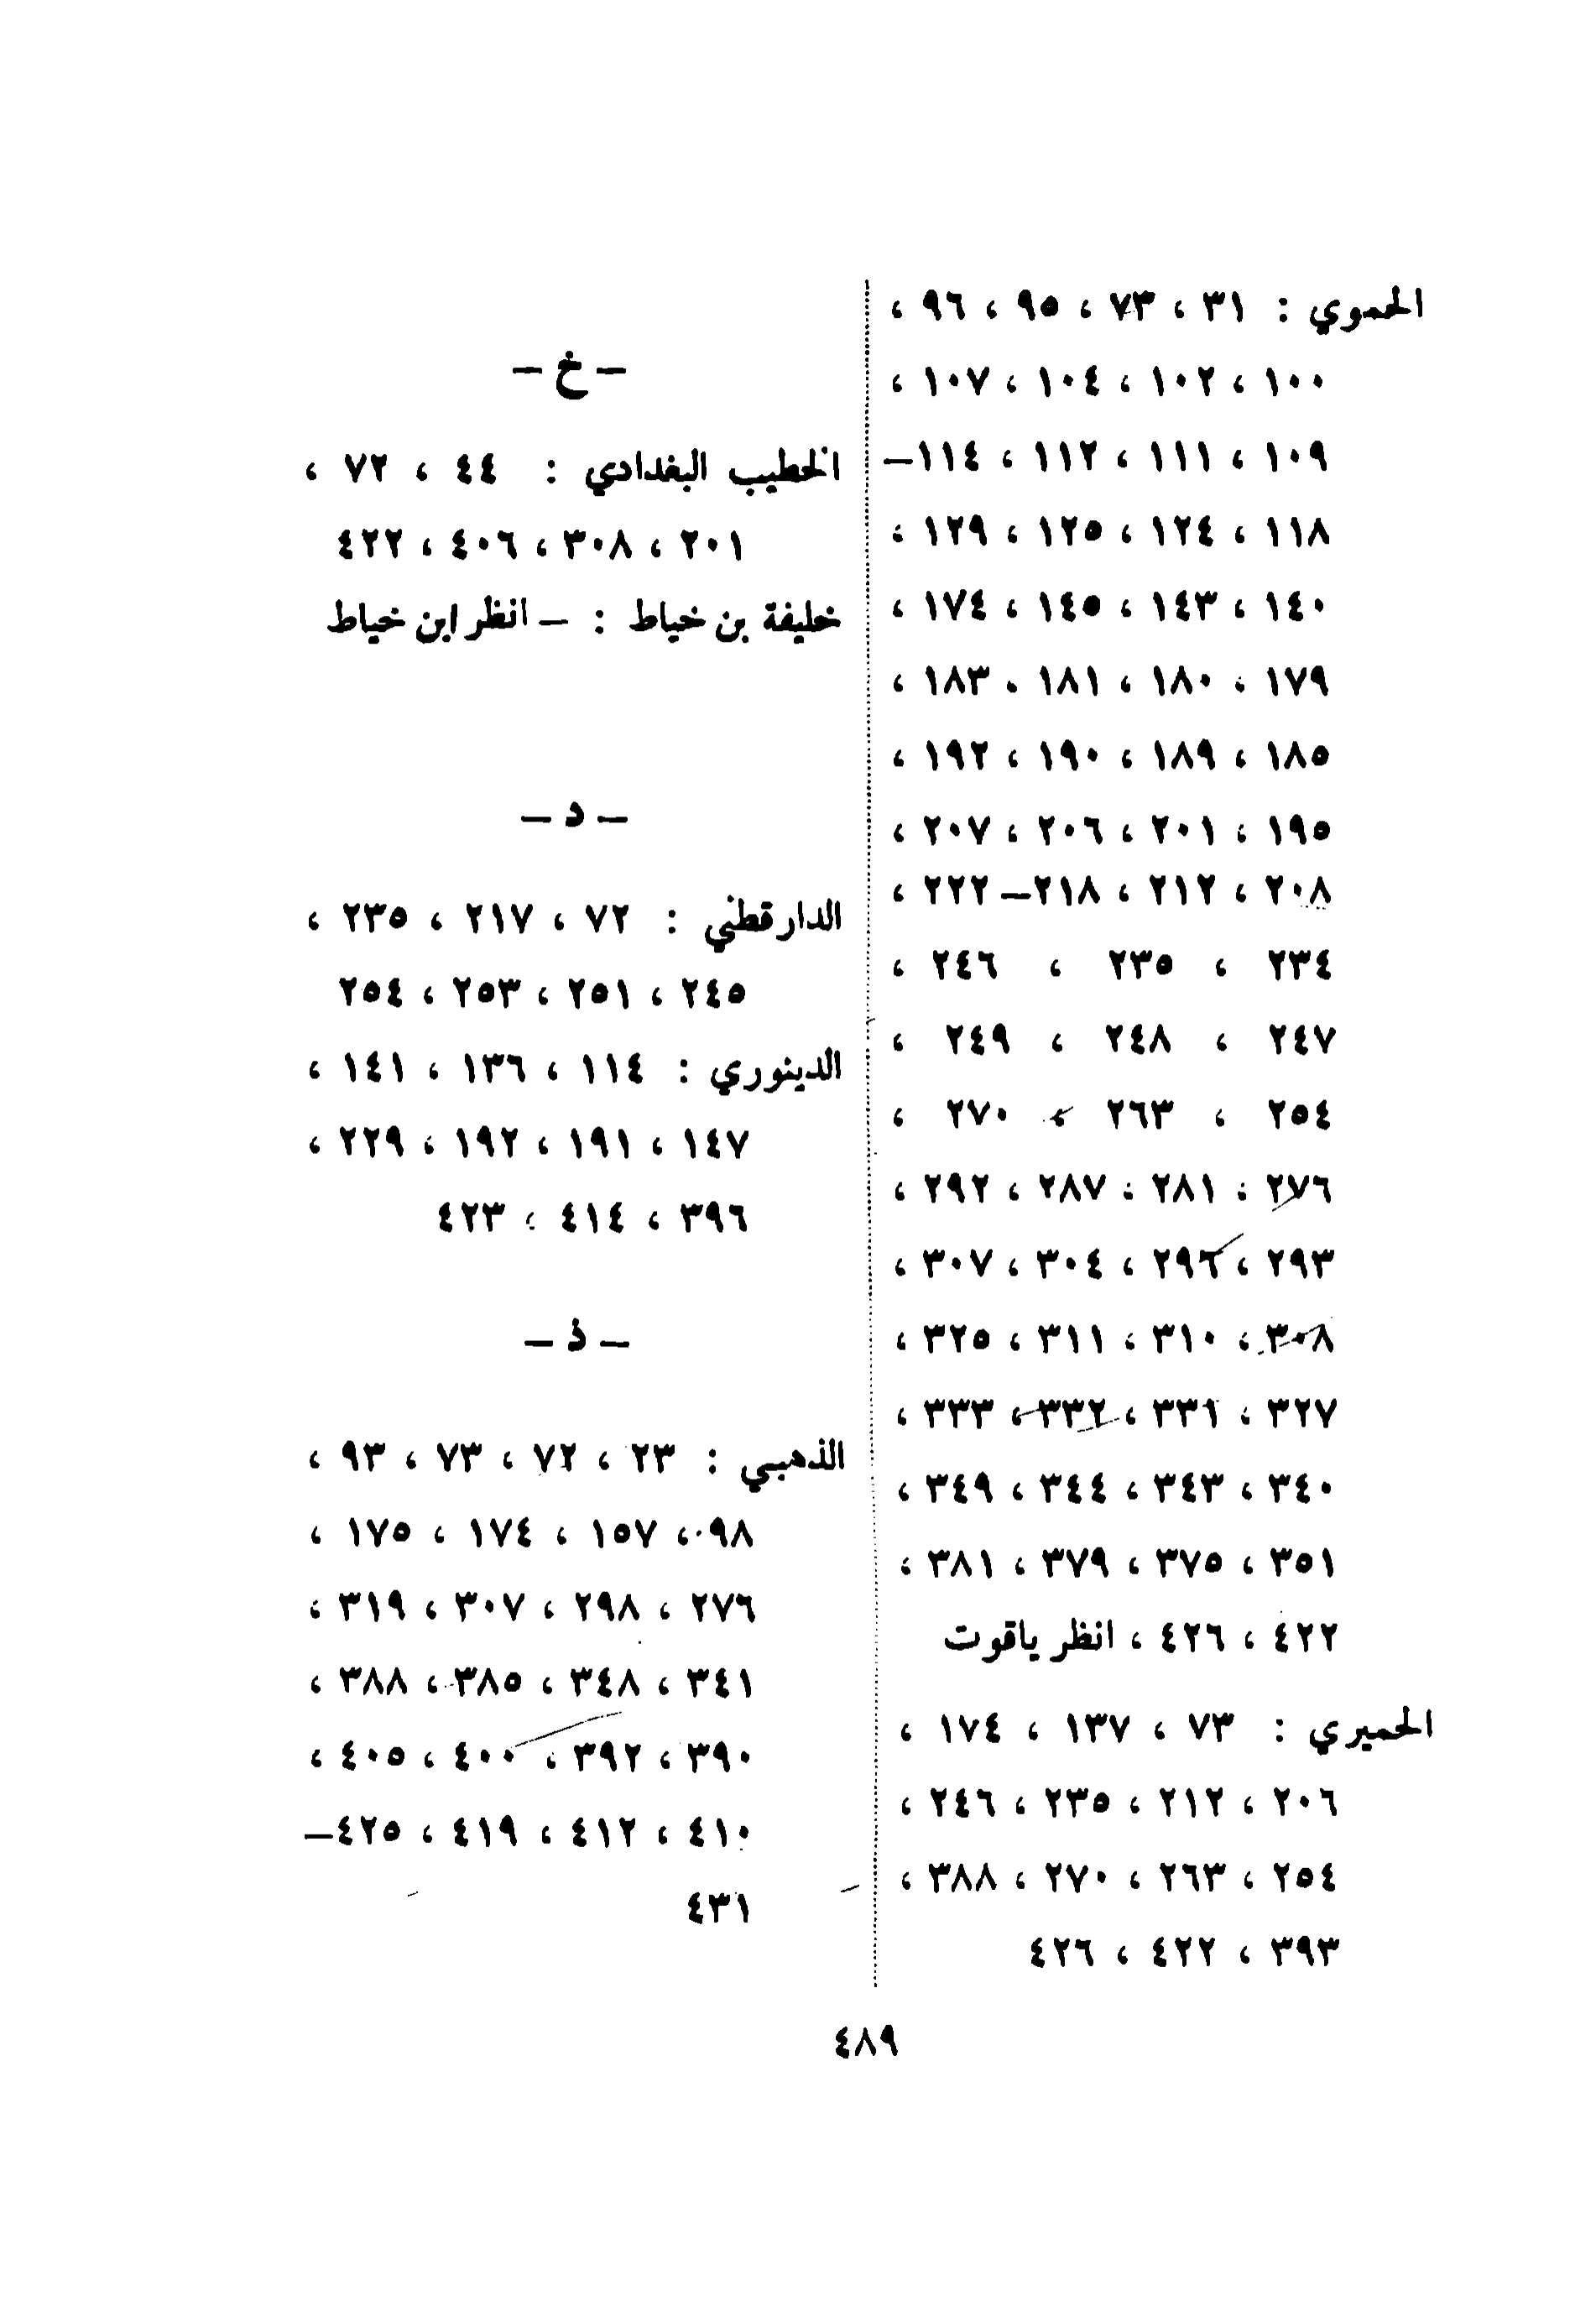 الحموي : ٣١ ، ٧٣ ، ٩٥ ، ٩٦ ،
١٠٠ ، ١٠٢ ، ١٠٤ ، ١٠٧ ،
١٠٩ ، ١١١ ، ١١٢ ، ١١٤–
١١٨ ، ١٢٤ ، ١٢٥ ، ١٢٩ ،
١٤٠ ، ١٤٣ ، ١٤٥ ، ١٧٤ ،
١٧٩ ، ١٨٠ ، ١٨١ ، ١٨٣ ،
١٨٥ ، ١٨٩ ، ١٩٠ ، ١٩٢ ،
١٩٥ ، ٢٠١ ، ٢٠٦ ، ٢٠٧ ،
٢٠٨ ، ٢١٢ ، ٢١٨– ٢٢٢ ،
٢٣٤ ، ٢٣٥ ، ٢٤٦ ،
٢٤٧ ، ٢٤٨ ، ٢٤٩ ،
٢٥٤ ، ٢٦٣ ، ٢٧٠ ،
٢٧٦ ، ٢٨١ ، ٢٨٧ ، ٢٩٢ ،
٢٩٣ ، ٢٩٦ ، ٣٠٤ ، ٣٠٧ ،
٣٠٨ ، ٣١٠ ، ٣١١ ، ٣٢٥ ،
٣٢٧ ، ٣٣١ ، ٣٣٢ ، ٣٣٣ ،
٣٤٠ ، ٣٤٣ ، ٣٤٤ ، ٣٤٩ ،
٣٥١ ، ٣٧٥ ، ٣٧٩ ، ٣٨١ ،
٤٢٢ ، ٤٢٦ ، انظر ياقوت
الحميري : ٧٣ ، ١٣٧ ، ١٧٤ ،
٢٠٦ ، ٢١٢ ، ٢٣٥ ، ٢٤٦ ،
٢٥٤ ، ٢٦٣ ، ٢٧٠ ، ٣٨٨ ،
٣٩٣ ، ٤٢٢ ، ٤٢٦
– خ –
الخطيب البغدادي : ٤٤ ، ٧٢ ،
٢٠١ ، ٣٠٨ ، ٤٠٦ ، ٤٢٢
خليفة بن خياط : – انظر ابن خياط
– د –
الدارقطني : ٧٢ ، ٢١٧ ، ٢٣٥ ،
٢٤٥ ، ٢٥١ ، ٢٥٣ ، ٢٥٤
الدينوري : ١١٤ ، ١٣٦ ، ١٤١ ،
١٤٧ ، ١٩١ ، ١٩٢ ، ٢٢٩ ،
٣٩٦ ، ٤١٤ ، ٤٢٣
– ذ –
الذهبي : ٢٣ ، ٧٢ ، ٧٣ ، ٩٣ ،
٩٨ ، ١٥٧ ، ١٧٤ ، ١٧٥ ،
٢٧٦ ، ٢٩٨ ، ٣٠٧ ، ٣١٩ ،
٣٤١ ، ٣٤٨ ، ٣٨٥ ، ٣٨٨ ،
٣٩٠ ، ٣٩٢ ، ٤٠٠ ، ٤٠٥ ،
٤١٠ ، ٤١٢ ، ٤١٩ ، ٤٢٥–
٤٣١
٤٨٩